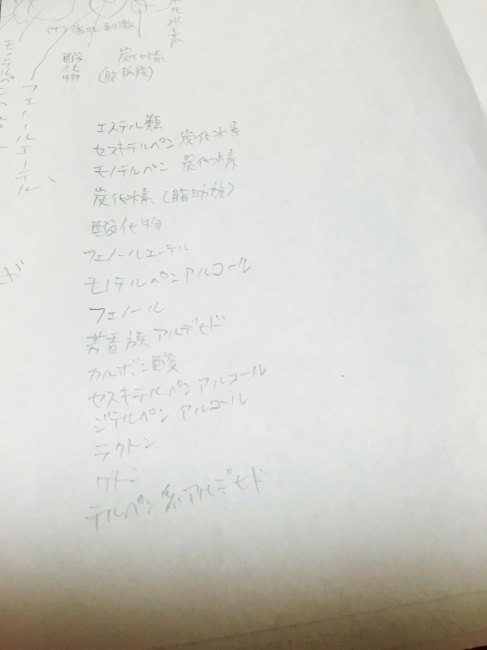 炭化水素
(+)
酸化物
炭化水素
(脂肪族)
フェノールエーテル
エステル類
セスキテルペン 炭化水素
モノテルペン 炭化水素
炭化水素 (脂肪族)
酸化物
フェノールエーテル
モノテルペンアルコール
フェノール
芳香族アルデヒド
カルボン酸
セスキテルペンアルコール
ジテルペン アルコール
ラクトン
ケトン
テルペン系アルデヒド